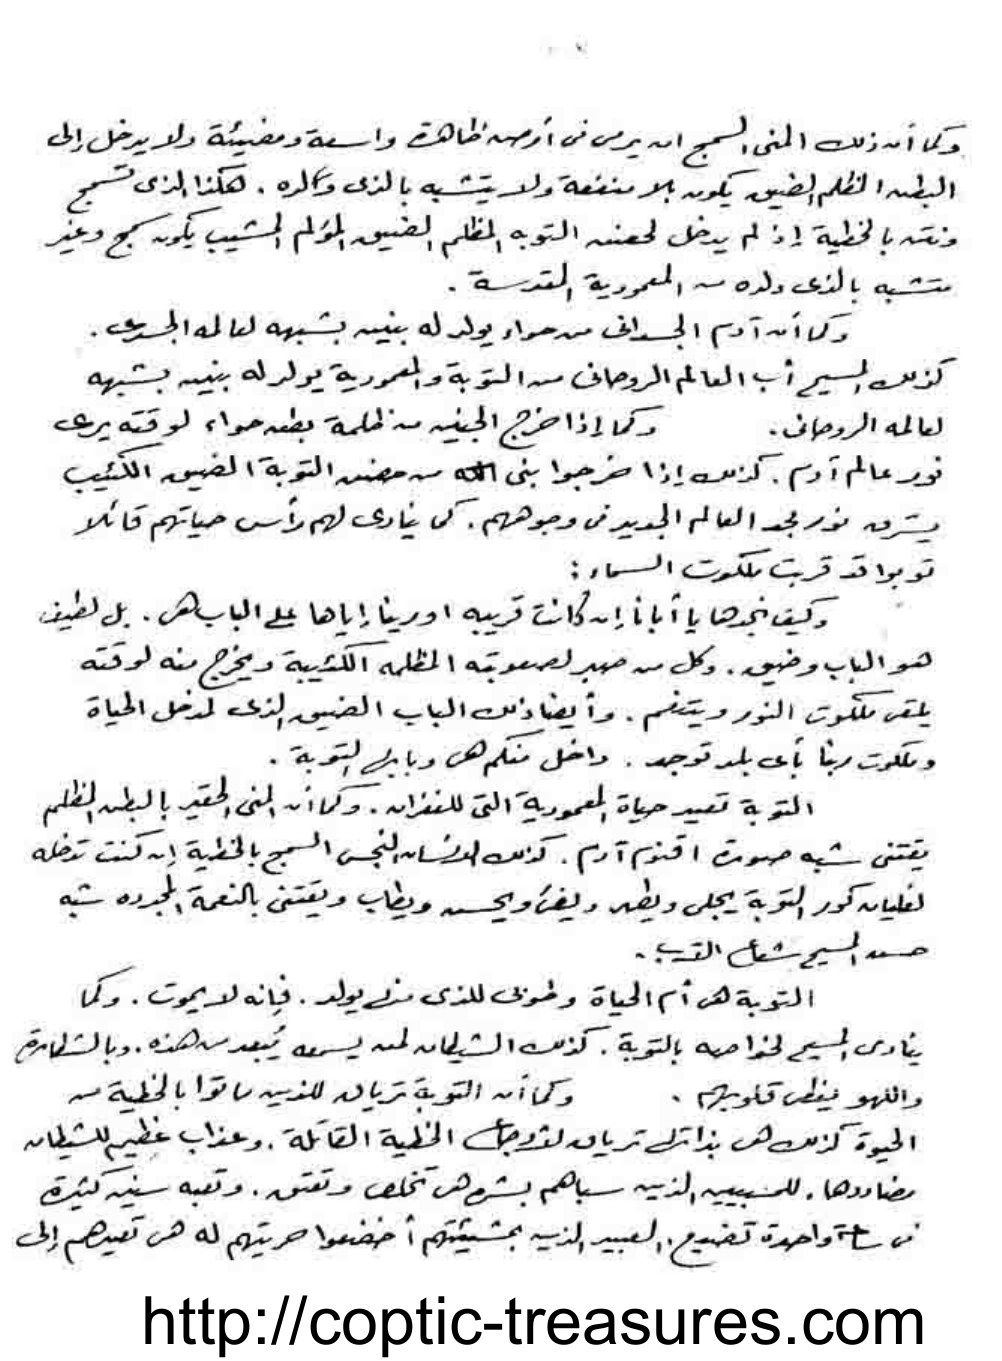 وكما أن ذلك المنى السمج ان يرمى فى أرض ظاهرة واسعة ومضيئة ولا يدخل إلى
البطن المظلم الضيق يكون بلا منفعة ولا يتشبه بالذى والده . هكذا الذى تسمج
ونتن بالخطية إذ لم يدخل لحضن التوبه المظلم الضيق المؤلم المشيب يكون سمج وغير
متشبه بالذى ولده من المعمودية المقدسة .
وكما أن آدم الجسدانى من حواء يولد له بنين بشبهه لعالمه الجسدى .
كذلك المسيح أب العالم الروحانى من التوبة والمعمودية يولد له بنين بشبهه
لعالمه الروحانى . وكما إذا خرج الجنين من ظلمة بطن حواء لوقته يرى
نور عالم آدم . كذلك إذا خرجوا بنى الله من حضن التوبة الضيق الكئيب
يشرق نور مجد العالم الجديد فى وجوههم . كما ينادى لهم رأس حياتهم قائلا
توبوا قد قربت ملكوت السماء :
وكيف نجدها يا أبانا إن كانت قريبه اورينا إياها على الباب هى . بل لطيف
هو الباب وضيق . وكل من صبر لصعوبته المظلمه الكئيبة ويخرج منه لوقته
يلقى ملكوت النور ويتنعم . وأيضا ذلك الباب الضيق الذى لمدخل الحياة
وملكوت ربنا بأى بلد توجد . داخل منكم هى وبابها التوبة .
التوبة تعيد حياة المعمودية التى للغفران . وكما أن المنى الحقير بالبطن المظلم
يقتنى شبه صورة اقنوم آدم . كذلك الإنسان النجس السمج بالخطية إن كنت تدخله
لغليان كور التوبة يجلى ويطهر ويضئ ويحسن ويطاب ويقتنى بالنعمة المجدده شبه
حسن المسيح شعاع الآب .
التوبة هى أم الحياة وطوبى للذى منها يولد . فإنه لا يموت . وكما
ينادى المسيح لخواصه بالتوبة . كذلك الشيطان لمن يسمعه يُبعد من هذه . وبالشطارة
واللهو يغطى قلوبهم . وكما أن التوبة ترياق للذين ماتوا بالخطية من
الحيوة كذلك هى بذاتها ترياق لأوجاع الخطية القاتلة . وعذاب عظيم للشيطان
مضاددها . للمسبيين الذين سباهم بشره هى تخلص وتعتق . وتعبه سنين كثيرة
فى ساعة واحدة تضيع . العبيد الذين بمشيئتهم أخضعوا حريتهم له هى تعيدهم إلى
http://coptic-treasures.com